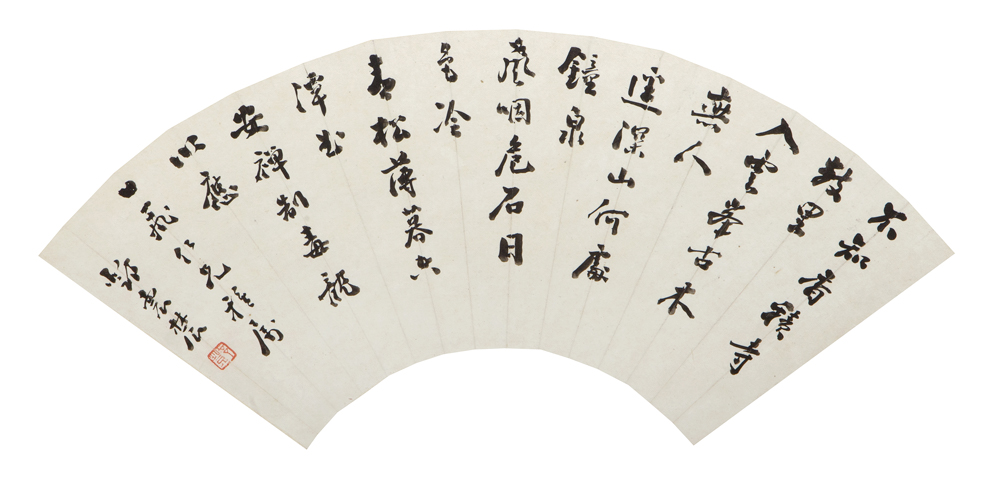 不知香積寺
數里
入雲峯古木
無人
逕深山何處
鐘泉
聲咽危石日
色冷
青松薄暮空
潭曲
安禪制毒龍
以應
飛仁兄雅屬